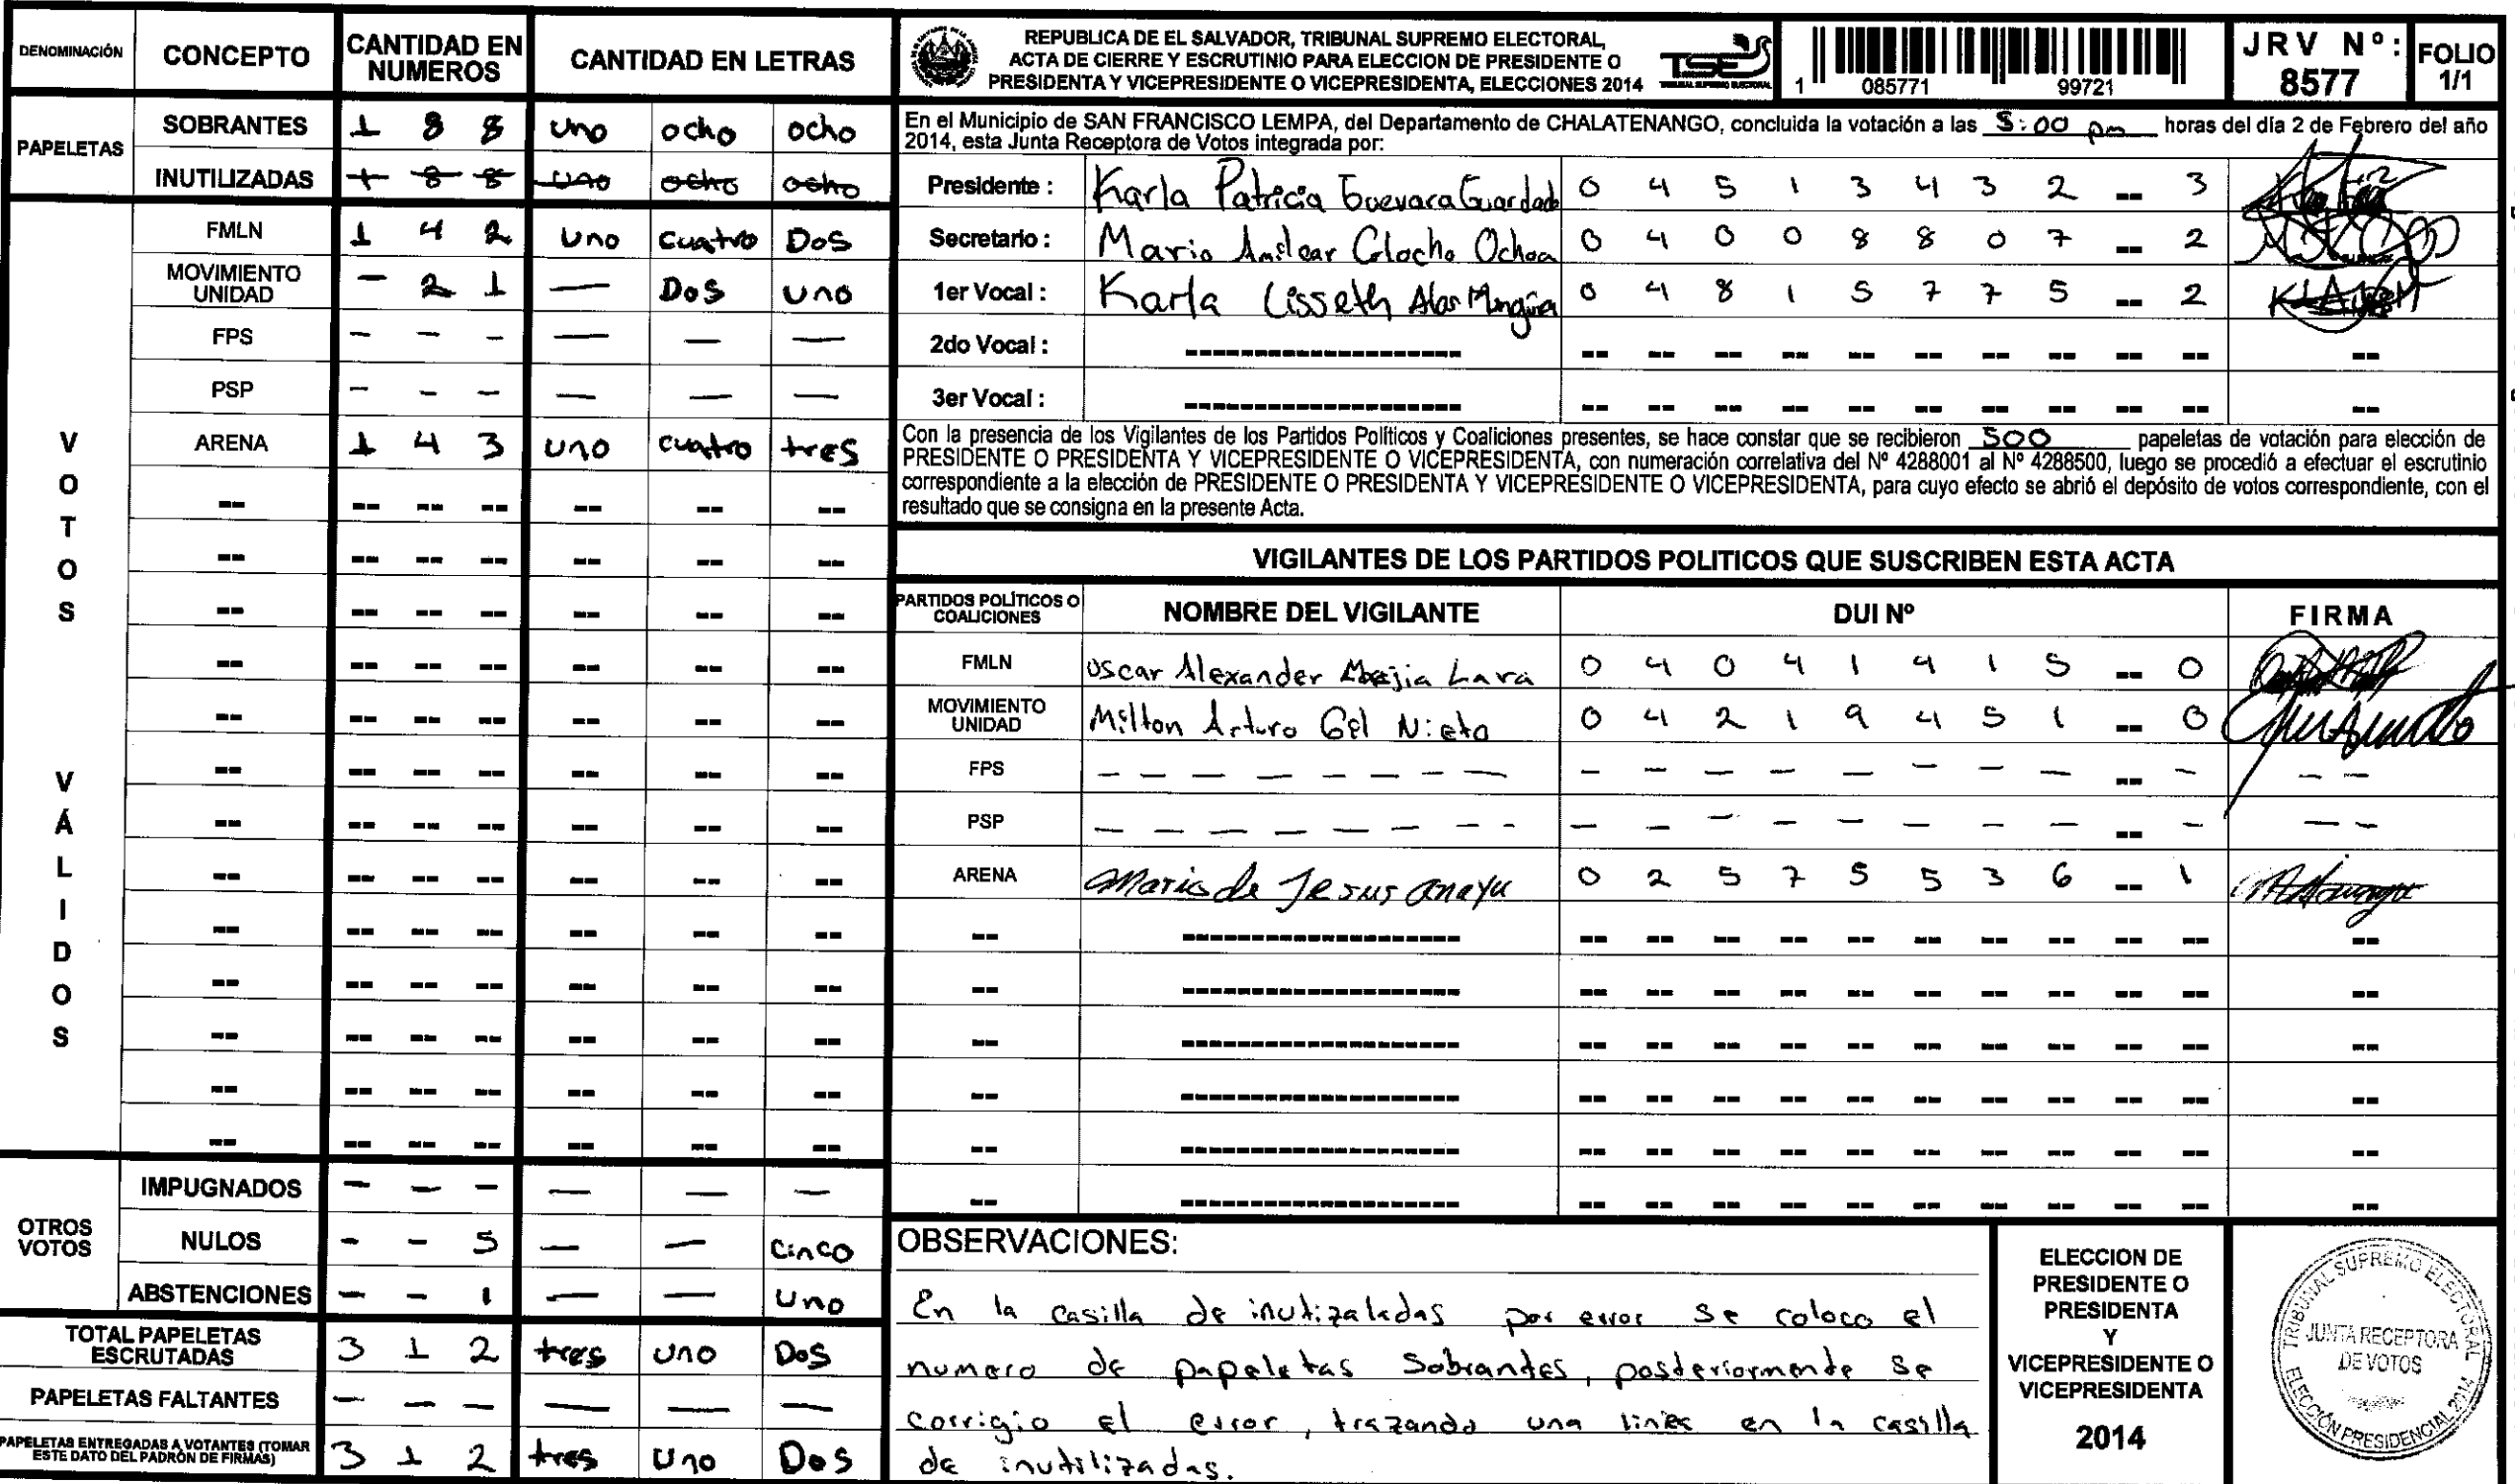 DENOMINACIÓN CONCEPTO CANTIDAD EN NUMEROS CANTIDAD EN LETRAS
PAPELETAS
SOBRANTES 1 8 8 uno ocho ocho
INUTILIZADAS 1 8 8 uno ocho ocho
VOTOS VÁLIDOS
FMLN 1 4 2 uno cuatro Dos
MOVIMIENTO UNIDAD - 2 1 — Dos uno
FPS - - - — — —
PSP - - - — — —
ARENA 1 4 3 uno cuatro tres
OTROS VOTOS
IMPUGNADOS - - - — — —
NULOS - - 5 — — cinco
ABSTENCIONES - - 1 — — uno
TOTAL PAPELETAS ESCRUTADAS 3 1 2 tres uno Dos
PAPELETAS FALTANTES - - - — — —
PAPELETAS ENTREGADAS A VOTANTES (TOMAR ESTE DATO DEL PADRÓN DE FIRMAS) 3 1 2 tres uno Dos
REPUBLICA DE EL SALVADOR, TRIBUNAL SUPREMO ELECTORAL,
ACTA DE CIERRE Y ESCRUTINIO PARA ELECCION DE PRESIDENTE O
PRESIDENTA Y VICEPRESIDENTE O VICEPRESIDENTA, ELECCIONES 2014
TSE
1 085771 99721
JRV Nº: 8577
FOLIO 1/1
En el Municipio de SAN FRANCISCO LEMPA, del Departamento de CHALATENANGO, concluida la votación a las 5:00 pm horas del día 2 de Febrero del año
2014, esta Junta Receptora de Votos integrada por:
Presidente : Karla Patricia Guevara Guardado 0 4 5 1 3 4 3 2 -- 3
Secretario : Mario Amilcar Ochoa 0 4 0 0 8 8 0 7 -- 2
1er Vocal : Karla Lisseth Alas 0 4 8 1 5 7 7 5 -- 2
2do Vocal :
3er Vocal :
Con la presencia de los Vigilantes de los Partidos Políticos y Coaliciones presentes, se hace constar que se recibieron 500 papeletas de votación para elección de
PRESIDENTE O PRESIDENTA Y VICEPRESIDENTE O VICEPRESIDENTA, con numeración correlativa del Nº 4288001 al Nº 4288500, luego se procedió a efectuar el escrutinio
correspondiente a la elección de PRESIDENTE O PRESIDENTA Y VICEPRESIDENTE O VICEPRESIDENTA, para cuyo efecto se abrió el depósito de votos correspondiente, con el
resultado que se consigna en la presente Acta.
VIGILANTES DE LOS PARTIDOS POLITICOS QUE SUSCRIBEN ESTA ACTA
PARTIDOS POLÍTICOS O COALICIONES NOMBRE DEL VIGILANTE DUI Nº FIRMA
FMLN Oscar Alexander Mejia Lara 0 4 0 4 1 4 1 5 -- 0
MOVIMIENTO UNIDAD Milton Arturo Gil Nieto 0 4 2 1 9 4 5 1 -- 0
FPS
PSP
ARENA Maria de Jesus anaya 0 2 5 7 5 5 3 6 -- 1
OBSERVACIONES:
En la casilla de inutizaladas por error se coloco el
numero de papeletas Sobrantes, posteriormente se
corrigio el error, trazando una linea en la casilla
de inutilizadas.
ELECCION DE
PRESIDENTE O
PRESIDENTA
Y
VICEPRESIDENTE O
VICEPRESIDENTA
2014
TRIBUNAL SUPREMO ELECTORAL
JUNTA RECEPTORA
DE VOTOS
ELECCIÓN PRESIDENCIAL 2014